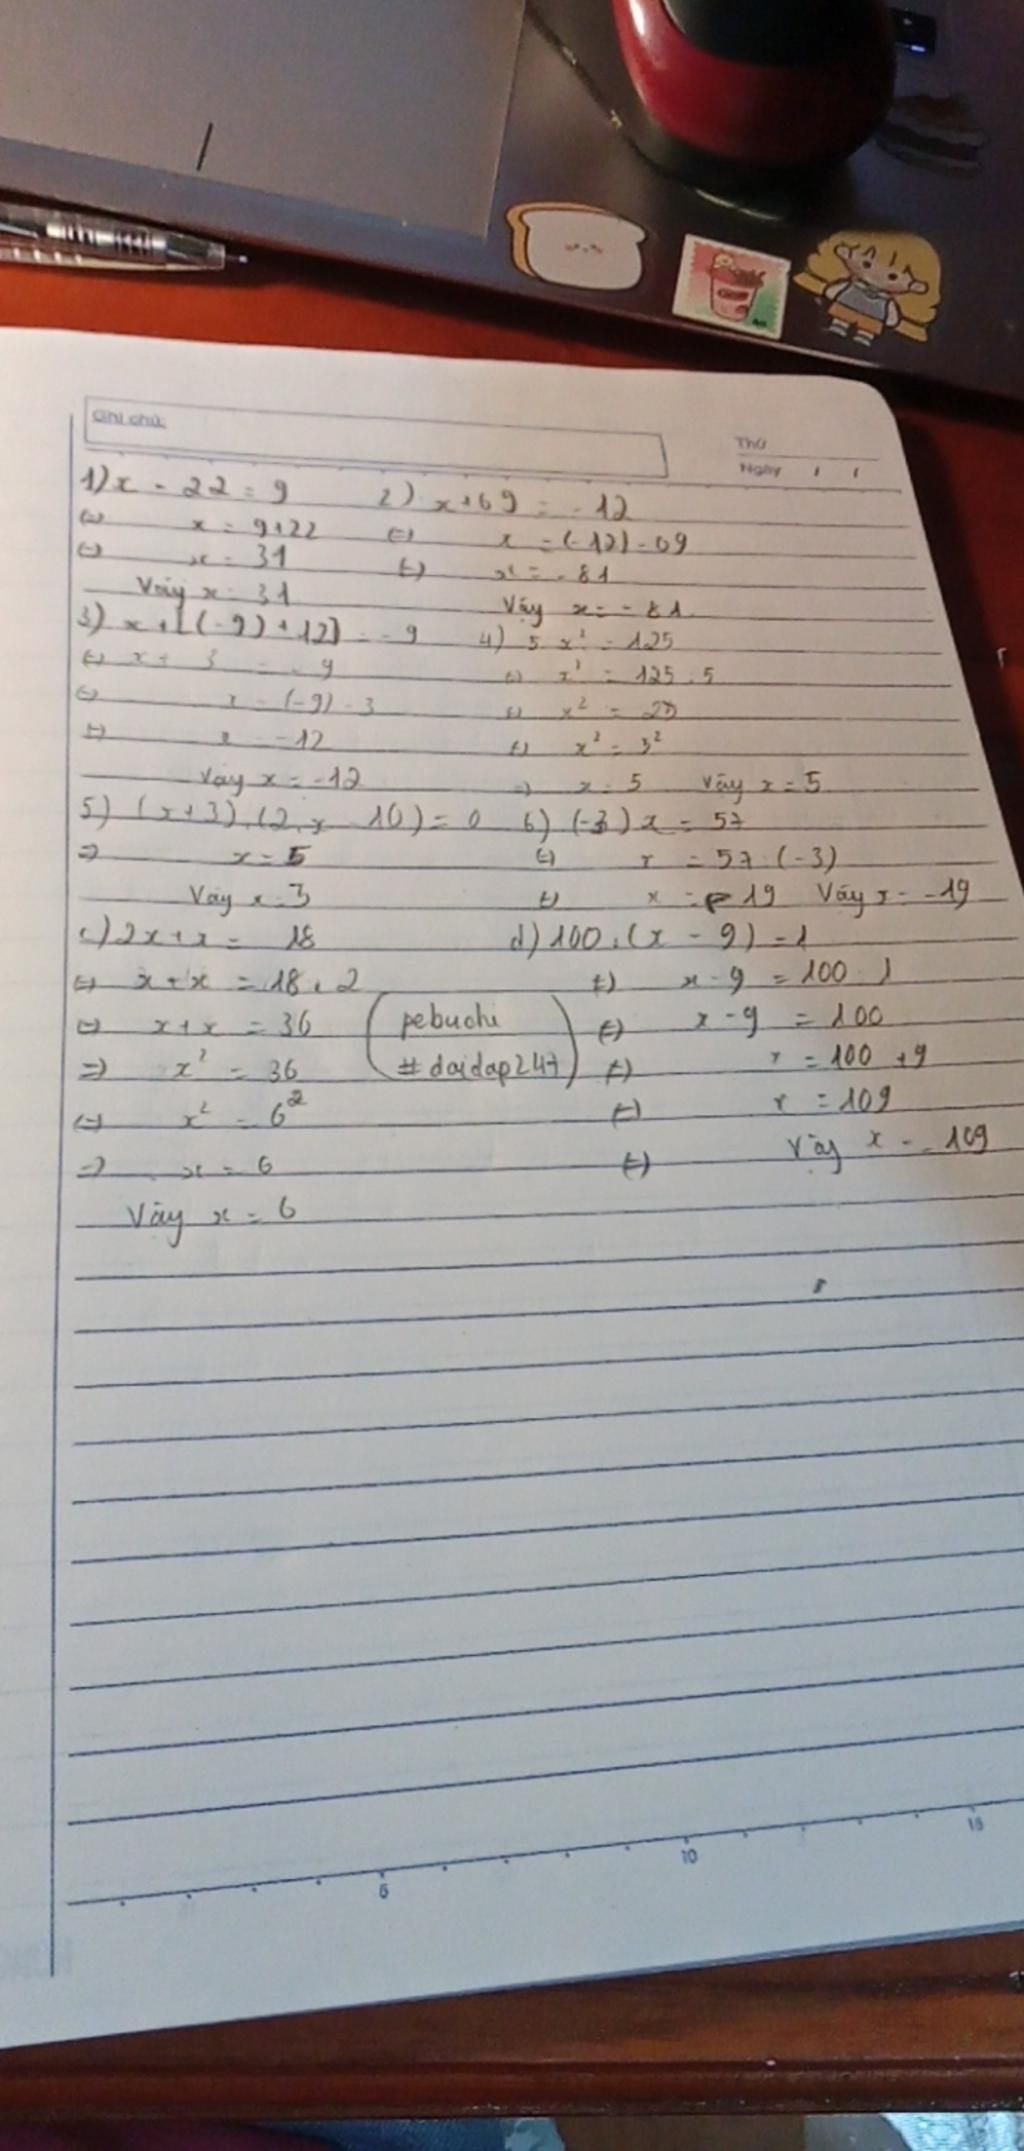 Ghi chú:
Thứ
Ngày / /
1) x - 22 = 9 2) x + 69 = -12
(=) x = 9+22 (=) x = (-12) - 69
(=) x = 31 (=) x = -81
Vậy x = 31 Vậy x = -81
3) x + [(-9) + 12] = -9 4) 5. x² = 125
(=) x + 3 = -9 (=) x² = 125 : 5
(=) x = (-9) - 3 (=) x² = 25
(=) x = -12 (=) x² = 5²
Vậy x = -12 => x = 5 Vậy x = 5
5) (x+3).(2.x - 10) = 0 b) (-3) x = 57
=> x = 5 (=) x = 57 : (-3)
Vậy x = 3 (=) x = - 19 Vậy x = -19
c) 2x + x = 18 d) 100 : (x - 9) = 1
(=) x + x = 18 . 2 (=) x - 9 = 100 : 1
(=) x + x = 36 (=) x - 9 = 100
pebuchi
=> x² = 36 (=) x = 100 + 9
#doidap247
(=) x² = 6² (=) x = 109
=> x = 6 (=) Vậy x = 109
Vậy x = 6
5 10 15